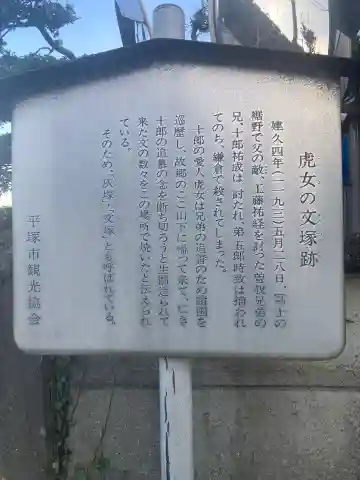 虎女の文塚跡
建久四年(一一九三)五月二八日、富士の
裾野で父の敵、工藤祐経を討った曽我兄弟の
兄、十郎祐成は討たれ、弟五郎時致は捕われ
てのち、鎌倉で殺されてしまった。
十郎の愛人虎女は兄弟の追善のため諸国を
巡歴し、故郷のここ山下に帰って来て、亡き
十郎の追慕の念を断ち切ろうと生前送られて
来た文の数々をこの場所で焼いたと伝えられ
ている。
そのため、「灰塚」「文塚」とも呼ばれている。
平塚市観光協会